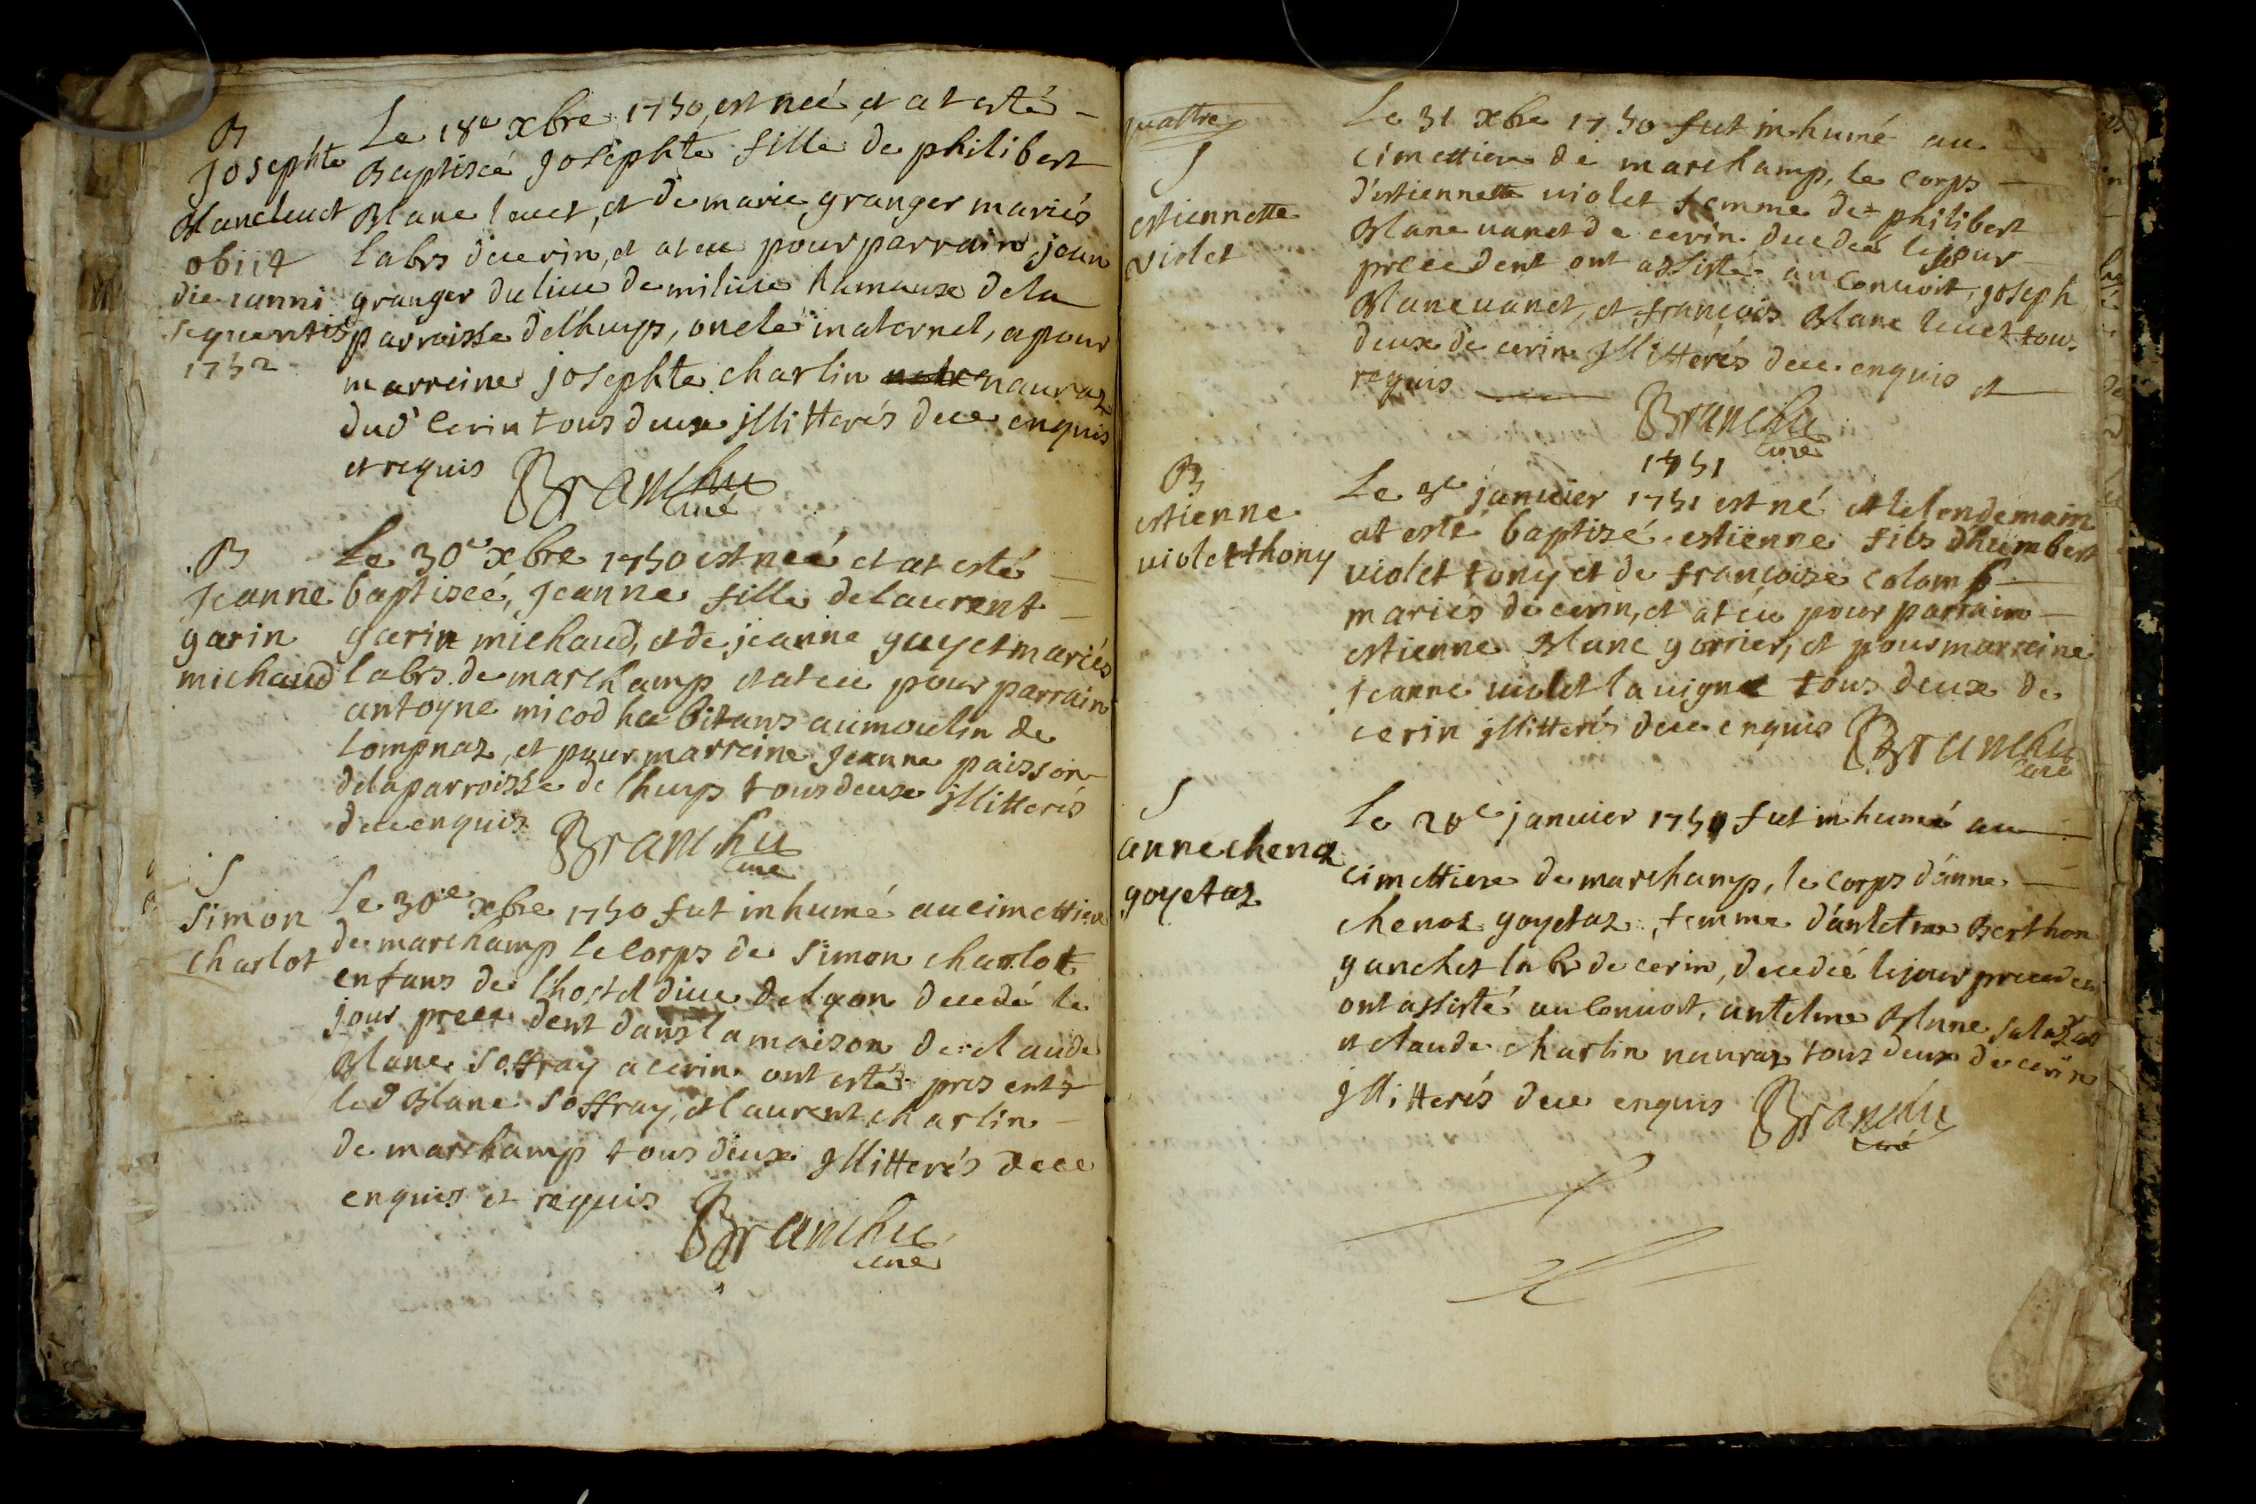 B
Josephte
Blancleuet
obiit
die 1 anni
sequentis
1752
Le 18e xbre 1750, est neé, et at esté
Baptiseé josephte fille de philibert
Blanc leuet, et de marie granger mariés
labrs de cerin, et at eu pour parrain jean
granger du lieu de milieu hameaux de la
parroisse de lhuys, oncle maternel, a pour
marreine josephte charlin nauraz
dud' Cerin tous deux jllitterés de ce enquis
et requis Branchu
curé
B
Jeanne
garin
michaud
Le 30e xbre 1750 est neé et at esté
baptiseé, Jeanne fille de laurent
garin michaud, et de jeanne guyet mariés
labrs. de marchamp et at eu pour parrain
antoyne micod habitans au moulin de
Lompnaz, et pour marreine Jeanne paisson
de la parroisse de lhuys tous deux jllitterés
de ce enquis Branchu
curé
S
Simon
charlot
Le 30e xbre 1750 fut inhumé au cimettiere
de marchamp le Corps de Simon charlot
enfans de lhostel dieu de lyon decedé le
jour precedent dans la maison de claude
Blanc soffray a cerin ont esté presents
led Blanc soffray, et laurent charlin
de marchamp tous deux jllitterés de ce
enquis et requis
Branchu
curé
quattre
S
estiennette
violet
Le 31 xbre 1750 fut inhumé au
cimettiere de marchamp, le corps
d'estiennette violet femme de philibert
Blanc uanet de cerin decedeé le jour
precedent ont assisté au Conuoit, joseph
Blanc uanet, et françois Blanc leuet tous
deux de cerin jllitterés de ce enquis et
requis
Branchu
curé
1751
B
estienne
violetthony
Le 3e januier 1751 est né et le lendemain
at esté baptizé estienne fils d'humbert
violet tony et de françoise colomb
mariés de cerin, et at eu pour parrain
estienne Blanc gorrier, et pour marreine
Jeanne violet lauigne tous deux de
cerin jllitterés de ce enquis Branchu
curé
S
anne chenoz
goyetaz
Le 28e januier 1751 fut inhumé au
cimettiere de marchamp, le corps d'anne
chenoz goyetaz, femme d'antelme Berthon
ganchet labr de cerin, decedeé le jour preceden
ont assisté au Conuoit, antelme Blanc
et claude charlin nauraz tous deux de cerin
jllitterés de ce enquis Branchu
curé